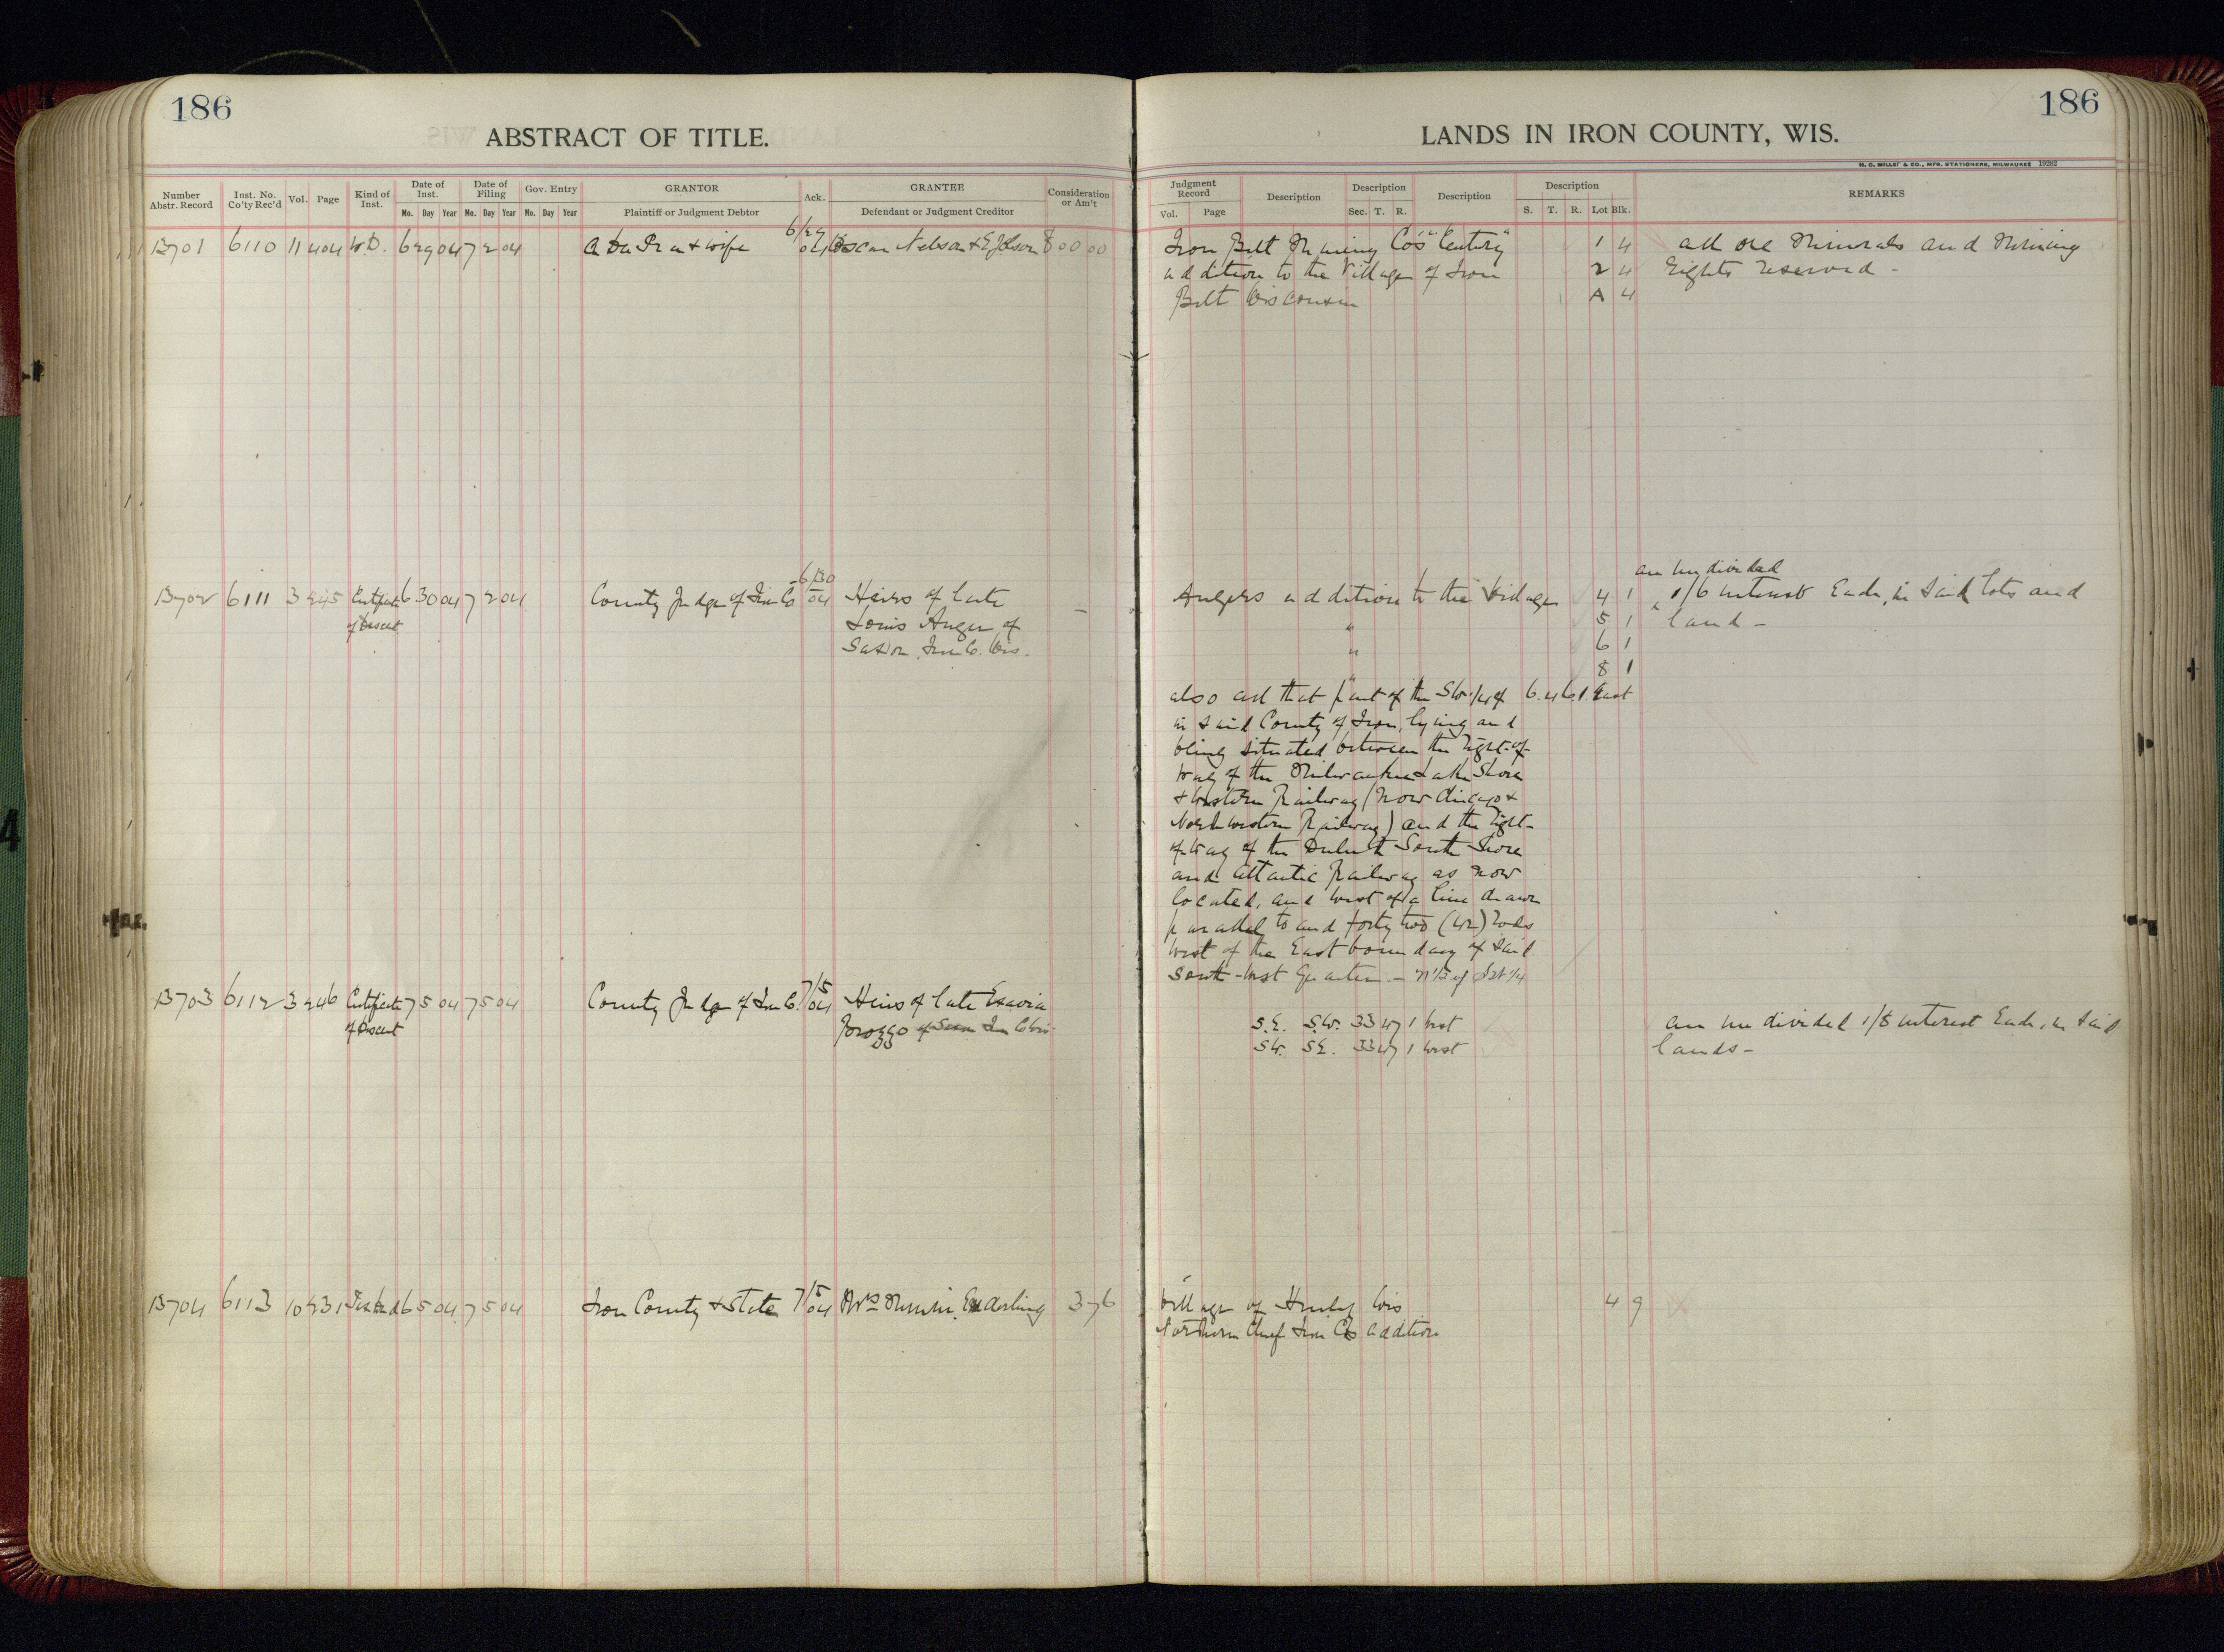 186
ABSTRACT OF TITLE.
Number Abstr. Record
Inst. No. Co'ty Rec'd
Vol.
Page
Kind of Inst.
Date of Inst.
Mo. Day Year
Date of Filing
Mo. Day Year
Gov. Entry
Mo. Day Year
GRANTOR
Plaintiff or Judgment Debtor
Ack.
GRANTEE
Defendant or Judgment Creditor
Consideration or Am't
13701 6110 11 404 W.D. 6 29 04 7 2 04 & wife 6/29 04 Oscar Nelson & 800 00
13702 6111 3 245 Certificate 6 30 04 7 2 04 County Judge of Iron Co 6/30 04 Heirs of late
of Descent Louis Auger of
Saxon, Iron Co. Wis.
13703 6112 3 246 Certificate 7 5 04 7 5 04 County Judge of Iron Co. 7/5 04 Heirs of late
of Descent
13704 6113 10 431 Tax Deed 6 5 04 7 5 04 Iron County & State 7/5 04 Mrs Minnie Enderling 3 76
186
LANDS IN IRON COUNTY, WIS.
H. C. MILLER CO., MFG. STATIONERS, MILWAUKEE 19282
Judgment Record
Vol. Page
Description
Description
Sec. T. R.
Description
Description
S. T. R. Lot Blk.
REMARKS
Iron Belt Mining Co's "Century" 1 4 all ore Minerals and Mining
addition to the Village of Iron 2 4 Rights reserved -
Belt Wisconsin A 4
an undivided
Augers addition to the Village 4 1 1/6 interest Each, in said lots and
" 5 1 land -
" 6 1
" 8 1
also all that part of the SW. 1/4 of 6. 46. 1. East
in said County of Iron, lying and
being situated between the right-of-
way of the Milwaukee Lake Shore
& Western Railway (now Chicago &
Northwestern Railway) and the right-
of-way of the Duluth South Shore
and Atlantic Railway as now
located, and west of a line drawn
parallel to and forty two (42) rods
west of the East boundary of said
South-West Quarter. - N 1/2 of SW 1/4
S.E. S.W. 33 47 1 West an undivided 1/5 interest Each, in said
SW. SE. 33 47 1 West lands -
Village of Hurley Wis 4 9
Northern Chief Iron Co addition